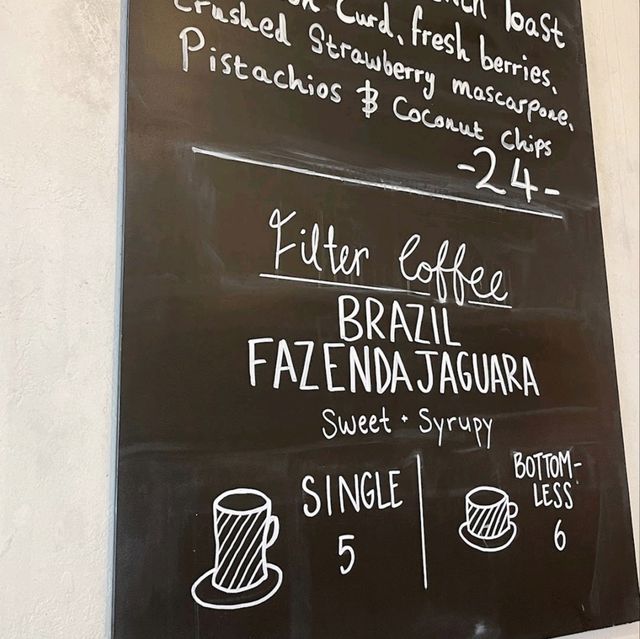 Toast
Curd, fresh berries,
Crushed Strawberry mascarpone,
Pistachios & Coconut Chips
-24-
Filter Coffee
BRAZIL
FAZENDA JAGUARA
Sweet + Syrupy
SINGLE
5
BOTTOM-
LESS
6